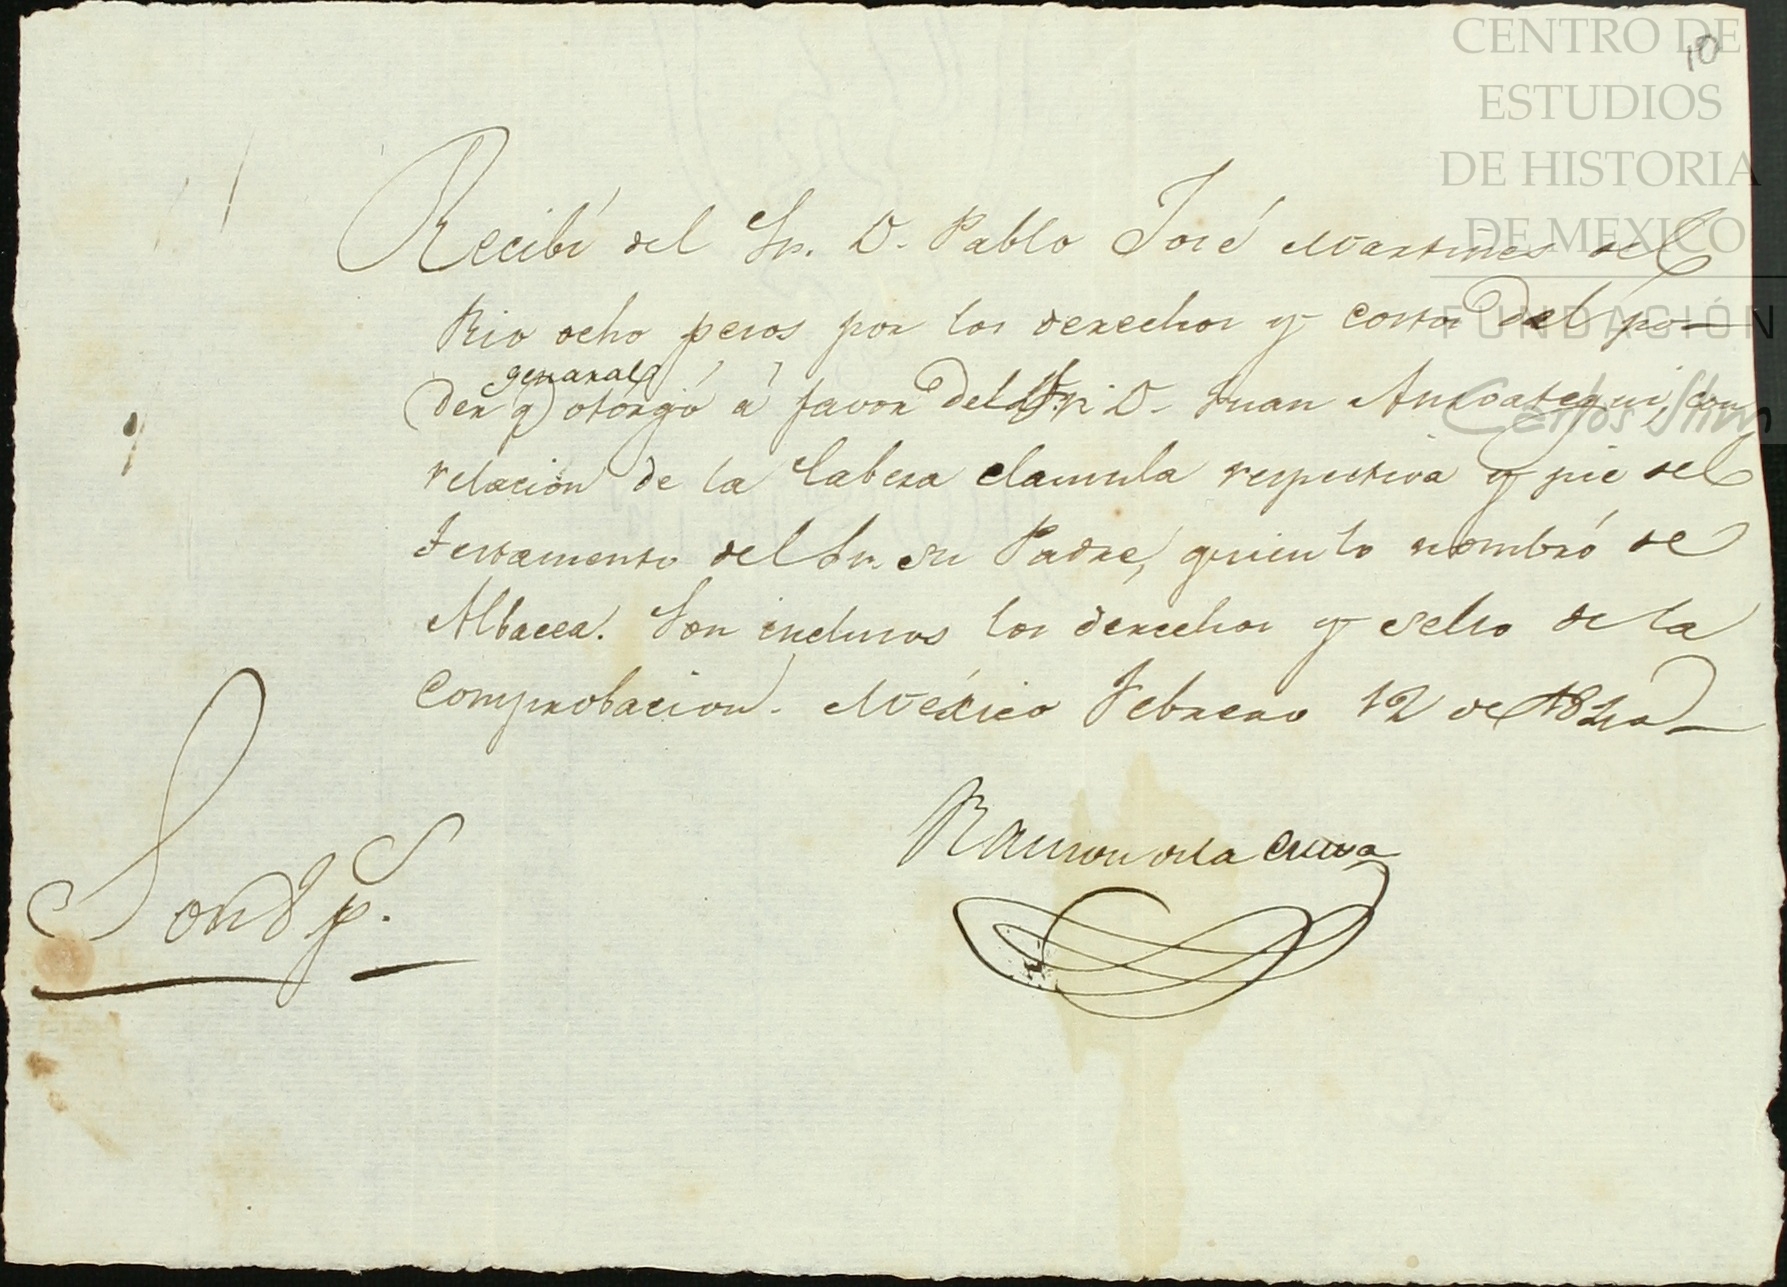 CENTRO DE
ESTUDIOS
DE HISTORIA
DE MEXICO
FUNDACIÓN
Carlos Slim
10
Recibí del Sr. D. Pablo José Martines del
Rio ocho pesos por los derechos y costos del po-
general
der q otorgó á favor del Sr. D. Juan Ansoategui, con
relacion de la Cabesa clausula respectiva y pie del
testamento del Sr. su Padre, quien lo nombró de
Albacea. Son inclusos los derechos y sello de la
comprobacion. México Febrero 12 de
Ramon de la Cueva
Son 8 p.